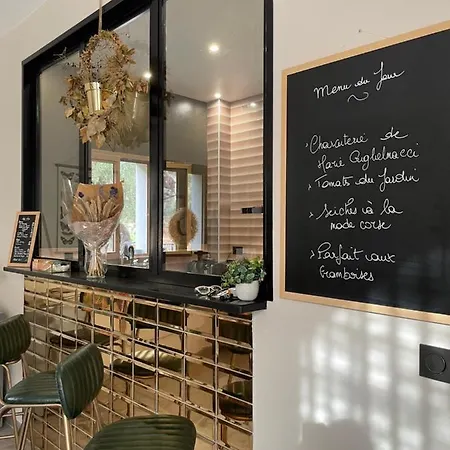 Menu du Jour
Charcuterie de
Marie Guglielmacci
Tomates du Jardin
Seiches à la
mode corse
Parfait aux
framboises